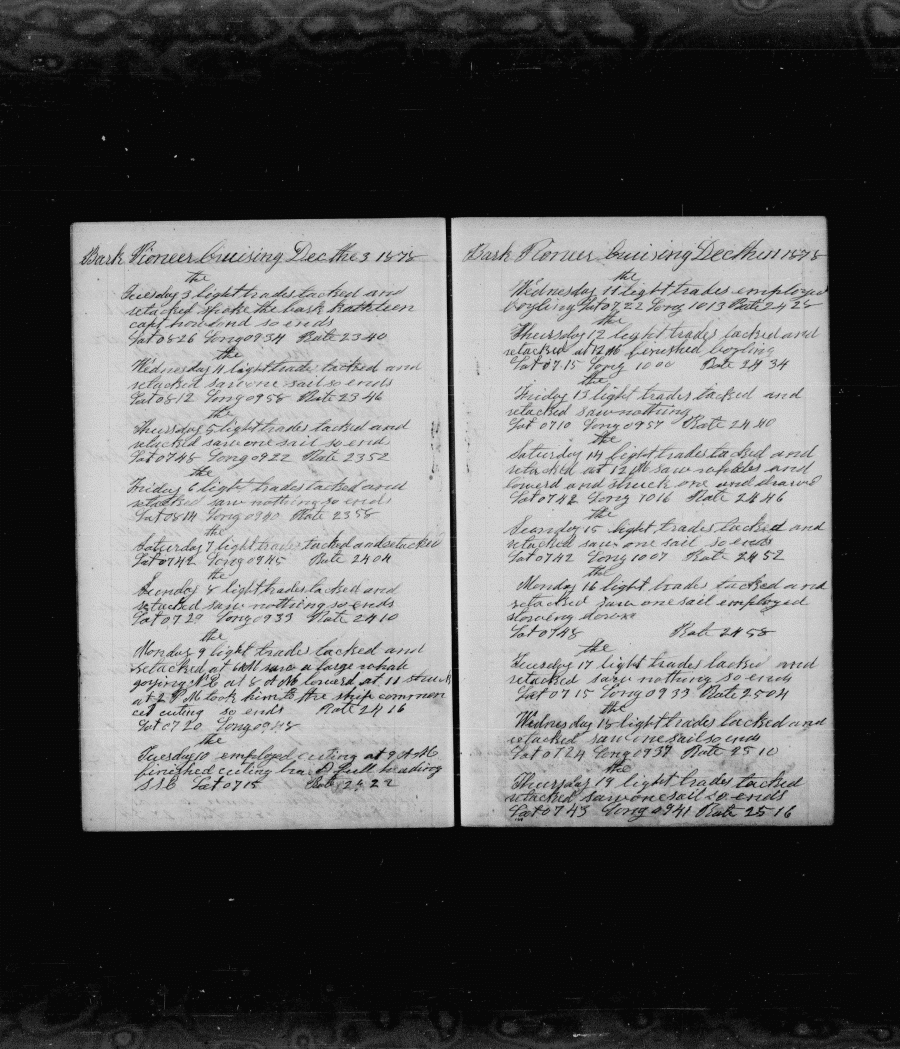 Bark Pioneer Cruising Dec the 3 1878
the
Tuesday 3 light trades tacked and
retacked spoke the bark Kathleen
capt howlond so ends
Lat 08 26 Long 09 34 Rate 23 40
the
Wednesday 4 light trades tacked and
retacked saw one sail so ends
Lat 08 12 Long 09 58 Rate 23 46
the
Thursday 5 light trades tacked and
retacked saw one sail so ends
Lat 07 48 Long 09 22 Rate 23 52
the
Friday 6 light trades tacked and
retacked saw nothing so ends
Lat 08 14 Long 09 40 Rate 23 58
the
Saturday 7 light trades tacked and retacked
Lat 07 42 Long 09 45 Rate 24 04
the
Sunday 8 light trades tacked and
retacked saw nothing so ends
Lat 07 29 Long 09 33 Rate 24 10
the
Monday 9 light trades tacked and
retacked at AM saw a large whale
goying at 8 AM lowerd at 11 struck
at 2 PM took him to the ship common
cut cuting so ends Rate 24 16
Lat 07 20 Long 09 48
the
Tuesday 10 employd cuting at 9 AM
finished cuting full heading
SSE Lat 07 15 Rate 24 22
Bark Pioneer Cruising Dec the 11 1878
the
Wednesday 11 light trades employed
boyling Lat 07 22 Long 10 13 Rate 24 28
the
Thursday 12 light trades tacked and
retacked at 12 M finished boyling
Lat 07 15 Long 10 00 Rate 24 34
the
Friday 13 light trades tacked and
retacked saw nothing
Lat 07 10 Long 09 57 Rate 24 40
the
Saturday 14 light trades tacked and
retacked at 12 M saw whales and
lowerd and struck one and drawed
Lat 07 42 Long 10 16 Rate 24 46
the
Sunday 15 light trades tacked and
retacked saw one sail so ends
Lat 07 42 Long 10 07 Rate 24 52
the
Monday 16 light trades tacked and
retacked saw one sail employed
stowing down
Lat 07 48 Rate 24 58
the
Tuesday 17 light trades tacked and
retacked saw nothing so ends
Lat 07 15 Long 09 33 Rate 25 04
the
Wednesday 18 light trades tacked and
retacked saw one sail so ends
Lat 07 24 Long 09 37 Rate 25 10
the
Thursday 19 light trades tacked
retacked saw one sail so ends
Lat 07 43 Long 09 41 Rate 25 16